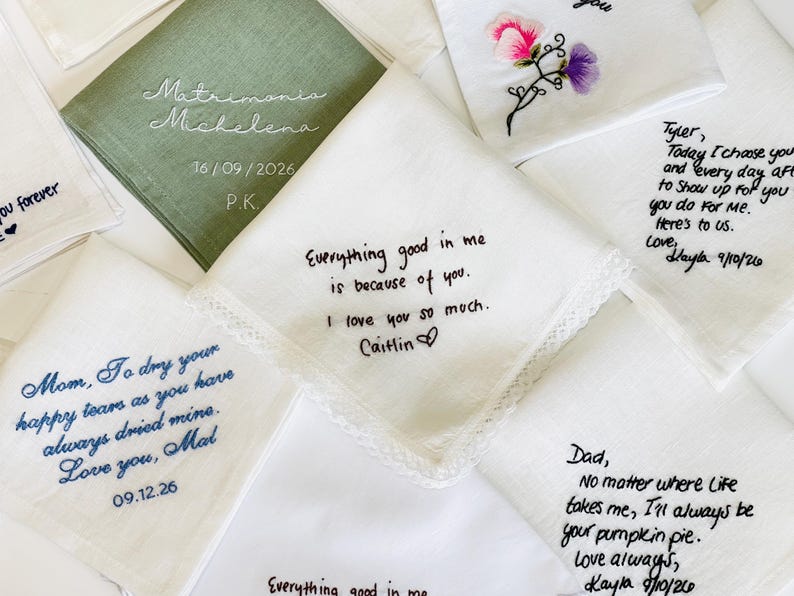 you
Matrimonio
Michelena
16/09/2026
P.K.
Tyler,
Today I choose you
and every day
to show up for you
you do for me.
Here's to us.
Love,
Kayla 9/10/26
you forever
Everything good in me
is because of you.
I love you so much.
Caitlin ♡
Mom, To dry your
happy tears as you have
always dried mine.
Love you, Mal
09.12.26
Dad,
No matter where life
takes me, I'll always be
your pumpkin pie.
Love always,
Kayla 9/10/26
Everything good in me